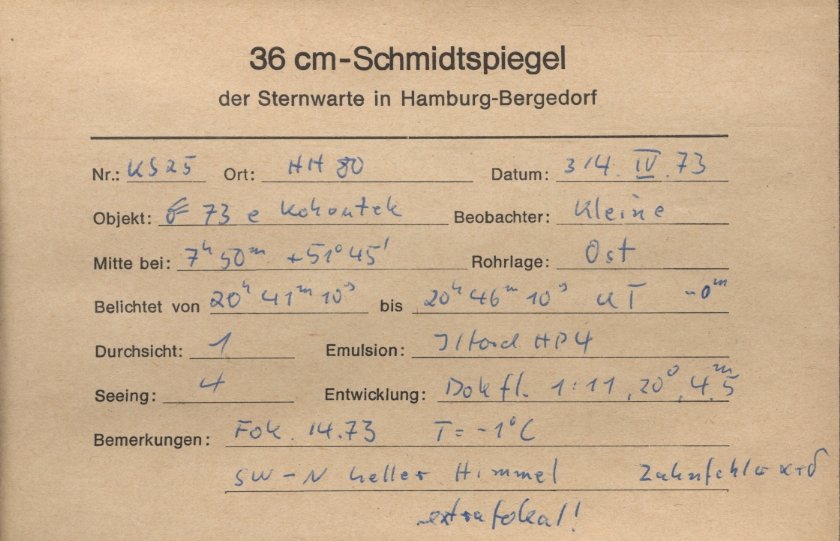 36 cm-Schmidtspiegel
der Sternwarte in Hamburg-Bergedorf
Nr.: KS25 Ort: HH 80 Datum: 3/4. IV. 73
Objekt: 73 e Kohoutek Beobachter: Kleine
Mitte bei: 7ʰ 50ᵐ +51° 45' Rohrlage: Ost
Belichtet von 20ʰ 41ᵐ 10ˢ bis 20ʰ 46ᵐ 10ˢ UT -0ᵐ
Durchsicht: 1 Emulsion: Ilford HP4
Seeing: 4 Entwicklung: Dokfl. 1:11, 20°, 4ᵐ,5
Bemerkungen: Fok. 14.73 T = -1°C
SW-N heller Himmel Zahnfehler
extrafokal!